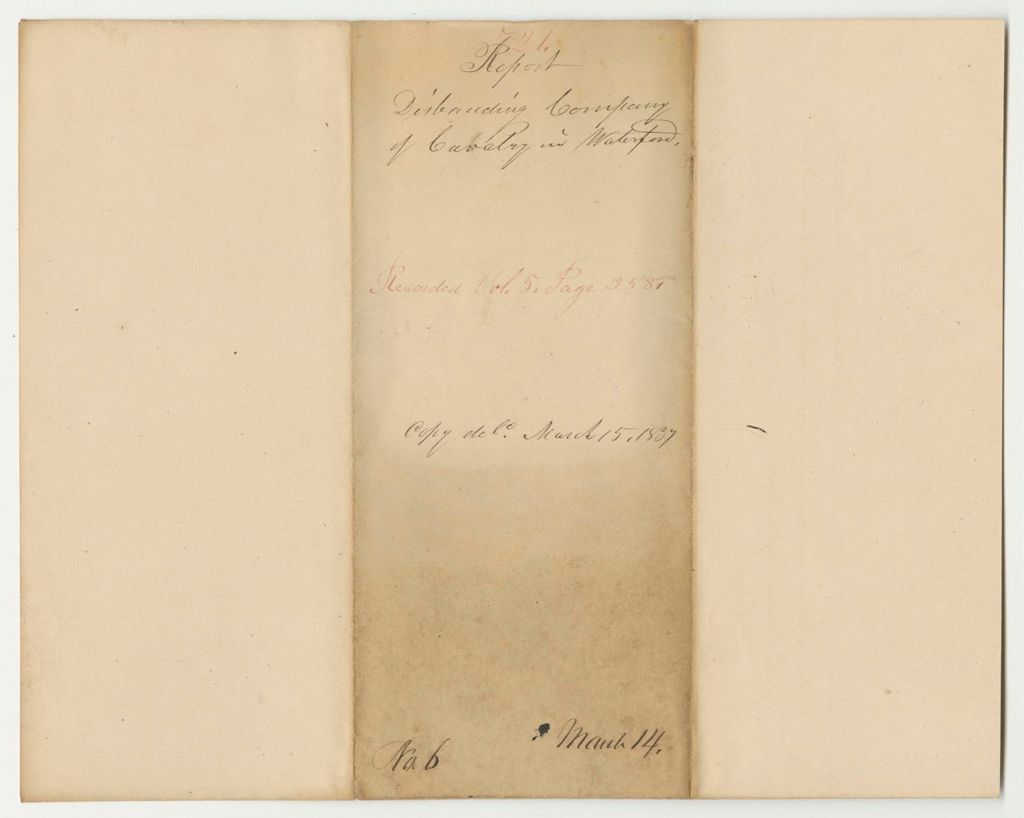 721.
Report
Disbanding Company
of Cavalry in Waterford.
Recorded Vol. 5. Page 258.
Copy del'd. March 15, 1837
No 6
March 14.